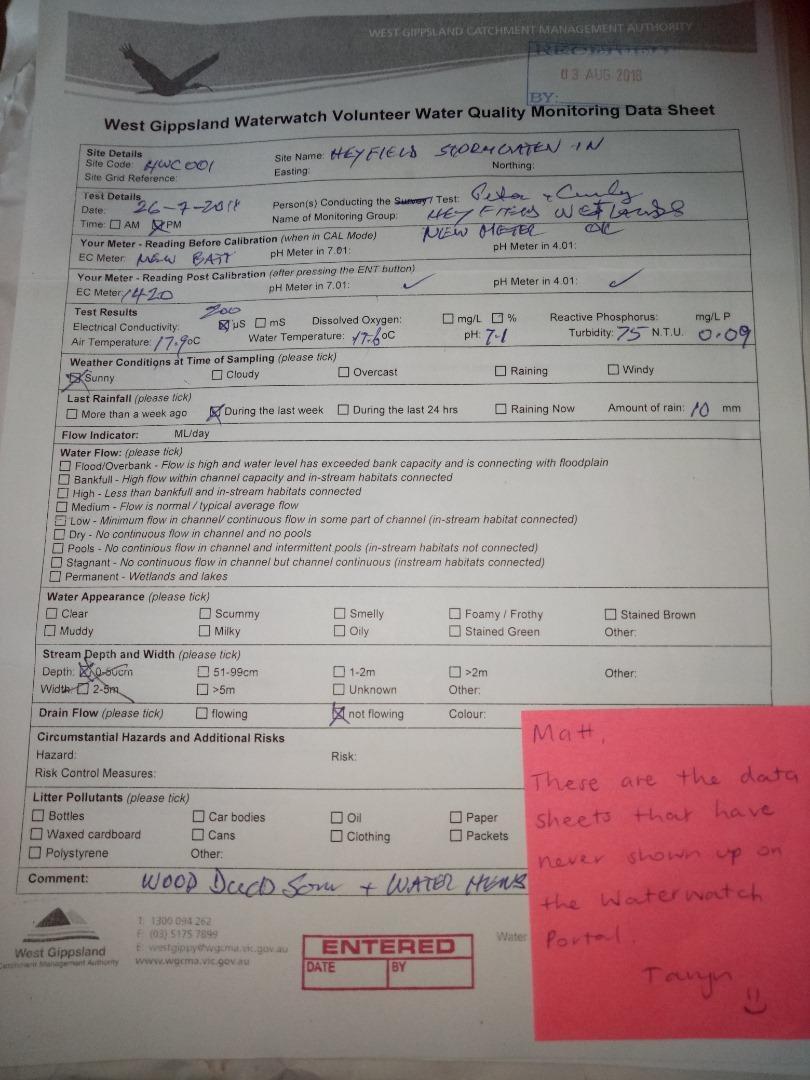 WEST GIPPSLAND CATCHMENT MANAGEMENT AUTHORITY
RECEIVED
03 AUG 2018
BY:
West Gippsland Waterwatch Volunteer Water Quality Monitoring Data Sheet
Site Details
Site Code: HWC001 Site Name: HEYFIELD STORMWATER IN
Site Grid Reference: Easting: Northing:
Test Details
Date: 26-7-2018 Person(s) Conducting the Survey / Test: Peter + Curly
Time: ☐ AM ☒ PM Name of Monitoring Group: HEYFIELD WETLANDS
Your Meter - Reading Before Calibration (when in CAL Mode) NEW METER OK
EC Meter: NEW BATT pH Meter in 7.01: pH Meter in 4.01:
Your Meter - Reading Post Calibration (after pressing the ENT button)
EC Meter: 1420 pH Meter in 7.01: ✓ pH Meter in 4.01: ✓
Test Results 200
Electrical Conductivity: ☒ µS ☐ mS Dissolved Oxygen: ☐ mg/L ☐ % Reactive Phosphorus: mg/L P
Air Temperature: 17.9oC Water Temperature: 17.6oC pH: 7.1 Turbidity: 75 N.T.U. 0.09
Weather Conditions at Time of Sampling (please tick)
☒ Sunny ☐ Cloudy ☐ Overcast ☐ Raining ☐ Windy
Last Rainfall (please tick)
☐ More than a week ago ☒ During the last week ☐ During the last 24 hrs ☐ Raining Now Amount of rain: 10 mm
Flow Indicator: ML/day
Water Flow: (please tick)
☐ Flood/Overbank - Flow is high and water level has exceeded bank capacity and is connecting with floodplain
☐ Bankfull - High flow within channel capacity and in-stream habitats connected
☐ High - Less than bankfull and in-stream habitats connected
☐ Medium - Flow is normal / typical average flow
☐ Low - Minimum flow in channel/ continuous flow in some part of channel (in-stream habitat connected)
☐ Dry - No continuous flow in channel and no pools
☐ Pools - No continious flow in channel and intermittent pools (in-stream habitats not connected)
☐ Stagnant - No continuous flow in channel but channel continuous (instream habitats connected)
☐ Permanent - Wetlands and lakes
Water Appearance (please tick)
☐ Clear ☐ Scummy ☐ Smelly ☐ Foamy / Frothy ☐ Stained Brown
☐ Muddy ☐ Milky ☐ Oily ☐ Stained Green Other:
Stream Depth and Width (please tick)
Depth: ☒ 0-50cm ☐ 51-99cm ☐ 1-2m ☐ >2m Other:
Width: ☐ 2-5m ☐ >5m ☐ Unknown Other:
Drain Flow (please tick) ☐ flowing ☒ not flowing Colour:
Circumstantial Hazards and Additional Risks
Hazard: Risk:
Risk Control Measures:
Litter Pollutants (please tick)
☐ Bottles ☐ Car bodies ☐ Oil ☐ Paper
☐ Waxed cardboard ☐ Cans ☐ Clothing ☐ Packets
☐ Polystyrene Other:
Comment: WOOD DUCD + WATER HENS
West Gippsland
Catchment Management Authority
T: 1300 094 262
F: (03) 5175 7899
E: westgippy@wgcma.vic.gov.au
www.wgcma.vic.gov.au
ENTERED
DATE BY
Water
Matt,
These are the data
sheets that have
never shown up on
the Waterwatch
Portal.
Taryn